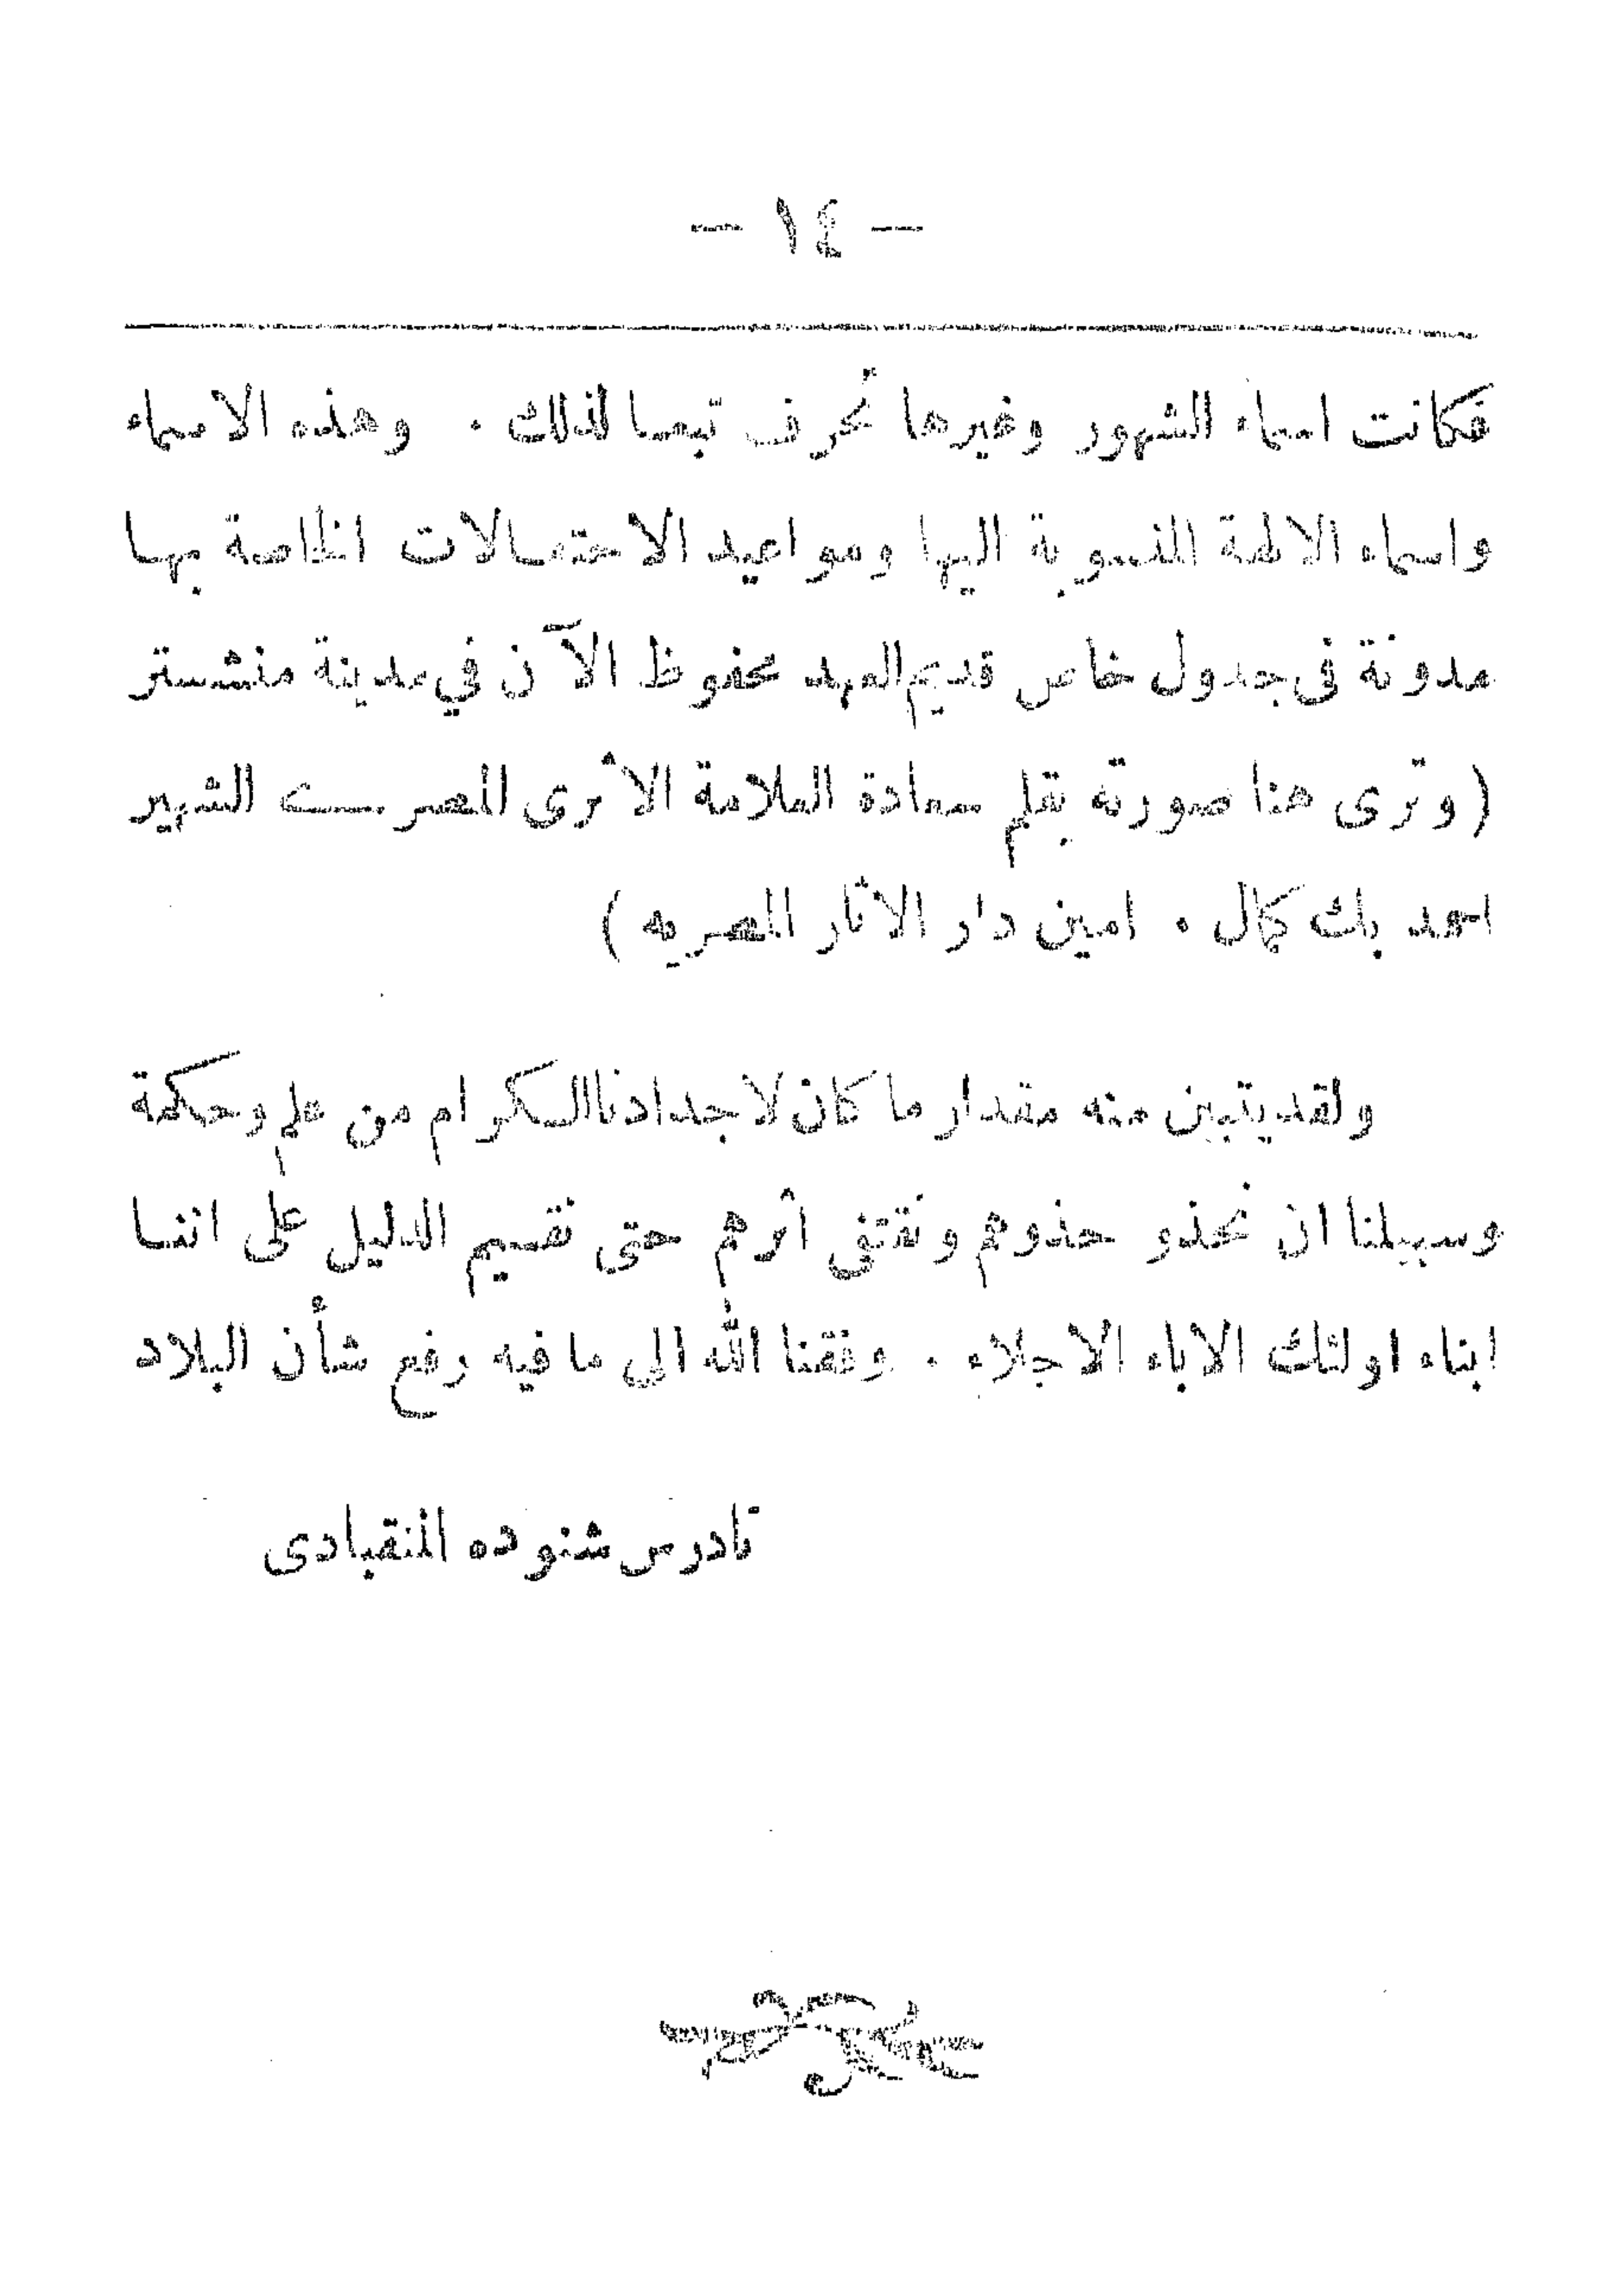 — ١٤ —
فكانت اسماء الشهور وغيرها تُحرف تبعا لذلك . وهذه الاسماء
واسماء الالهة المنسوبة اليها ومواعيد الاحتفالات الخاصة بها
مدونة فى جدول خاص قديم العهد محفوظ الآن في مدينة منشستر
( وترى هنا صورته بقلم سعادة العلامة الأثرى المصرى الشهير
احمد بك كمال . امين دار الاثار المصريه )
ولقد يتبين منه مقدار ما كان لاجدادنا الكرام من علم وحكمة
وسبيلنا ان نحذو حذوهم ونقتفى اثرهم حتى نقسيم الدليل على اننا
ابناء اولئك الاباء الاجلاء . وفقنا الله الى ما فيه رفع شأن البلاد
تادرس شنوده المنقبادى